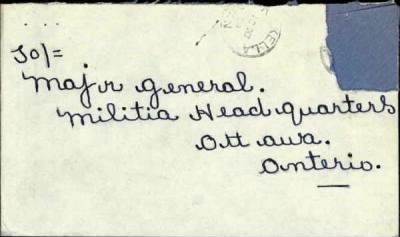 To/=
Majr general.
Militia Head quarters
Ottawa.
Onterio.